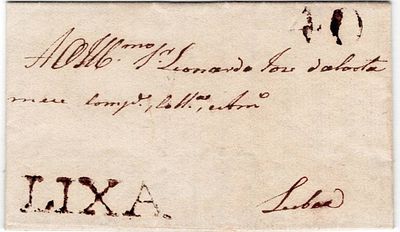 40
AO Ill.mo Sr Leonardo Joze da Costa
meu Comp.e, Coll.a, e Am.o
LIXA.
Lisboa